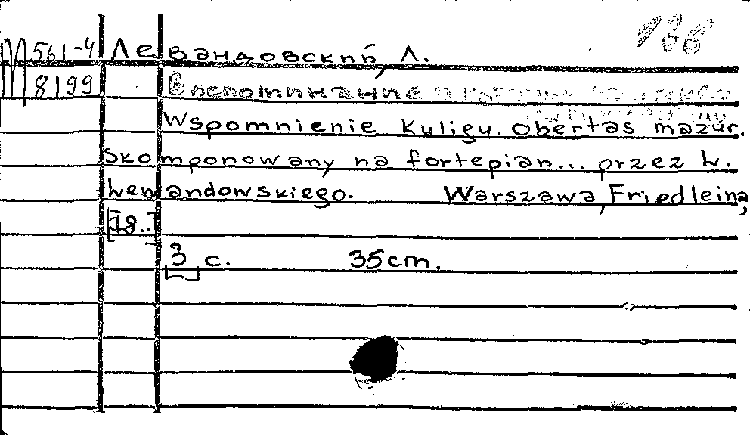 186
М 561-4 Левандовский, Л.
8199 Вспоминание
Wspomnienie Kuligu. Obertas mazur.
Skomponowany na fortepian... przez L.
Lewandowskiego. Warszawa, Friedlein,
[18..]
[3] c. 35cm.